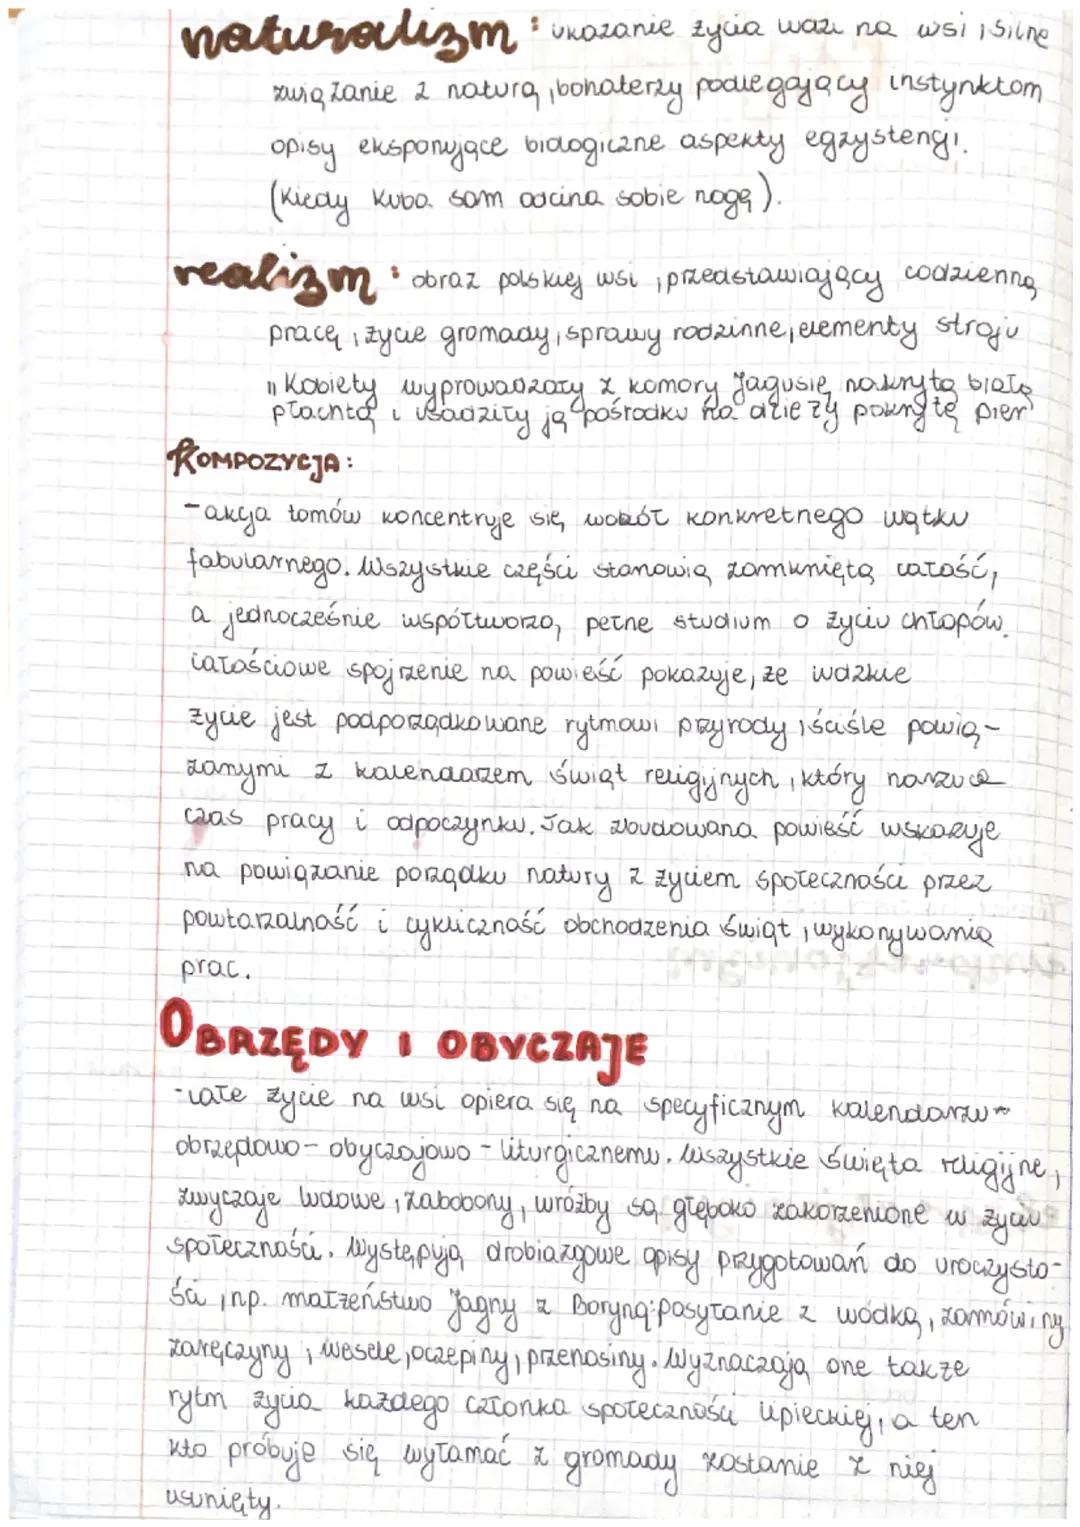 naturalizm: ukazanie życia ludzi na wsi, silne
związanie z naturą, bohaterzy podlegający instynktom
opisy eksponujące biologiczne aspekty egzystencji.
(kiedy Kuba sam odcina sobie nogę).
realizm: obraz polskiej wsi, przedstawiający codzienną
pracę, życie gromady, sprawy rodzinne, elementy stroju
"Kobiety wyprowadzały z komory Jagusię, nakrytą białą
płachtą i usadziły ją pośrodku na dzieży pokrytą pier
KOMPOZYCJA:
- akcja tomów koncentruje się wokół konkretnego wątku
fabularnego. Wszystkie części stanowią zamkniętą całość,
a jednocześnie współtworzą, pełne studium o życiu chłopów.
Całościowe spojrzenie na powieść pokazuje, że ludzkie
życie jest podporządkowane rytmowi przyrody, ściśle powią-
zanymi z kalendarzem świąt religijnych, który narzuca
czas pracy i odpoczynku. Tak zbudowana powieść wskazuje
na powiązanie porządku natury z życiem społeczności przez
powtarzalność i cykliczność obchodzenia świąt, wykonywania
prac.
OBRZĘDY I OBYCZAJE
- całe życie na wsi opiera się na specyficznym kalendarzu
obrzędowo - obyczajowo - liturgicznemu. Wszystkie święta religijne,
zwyczaje ludowe, zabobony, wróżby są głęboko zakorzenione w życiu
społeczności. Występują drobiazgowe opisy przygotowań do uroczysto-
ści, np. małżeństwo Jagny z Boryną: posyłanie z wódką, zamówiny
zaręczyny, wesele, oczepiny, przenosiny. Wyznaczają one także
rytm życia każdego członka społeczności lipieckiej, a ten
kto próbuje się wyłamać z gromady zostanie z niej
usunięty.